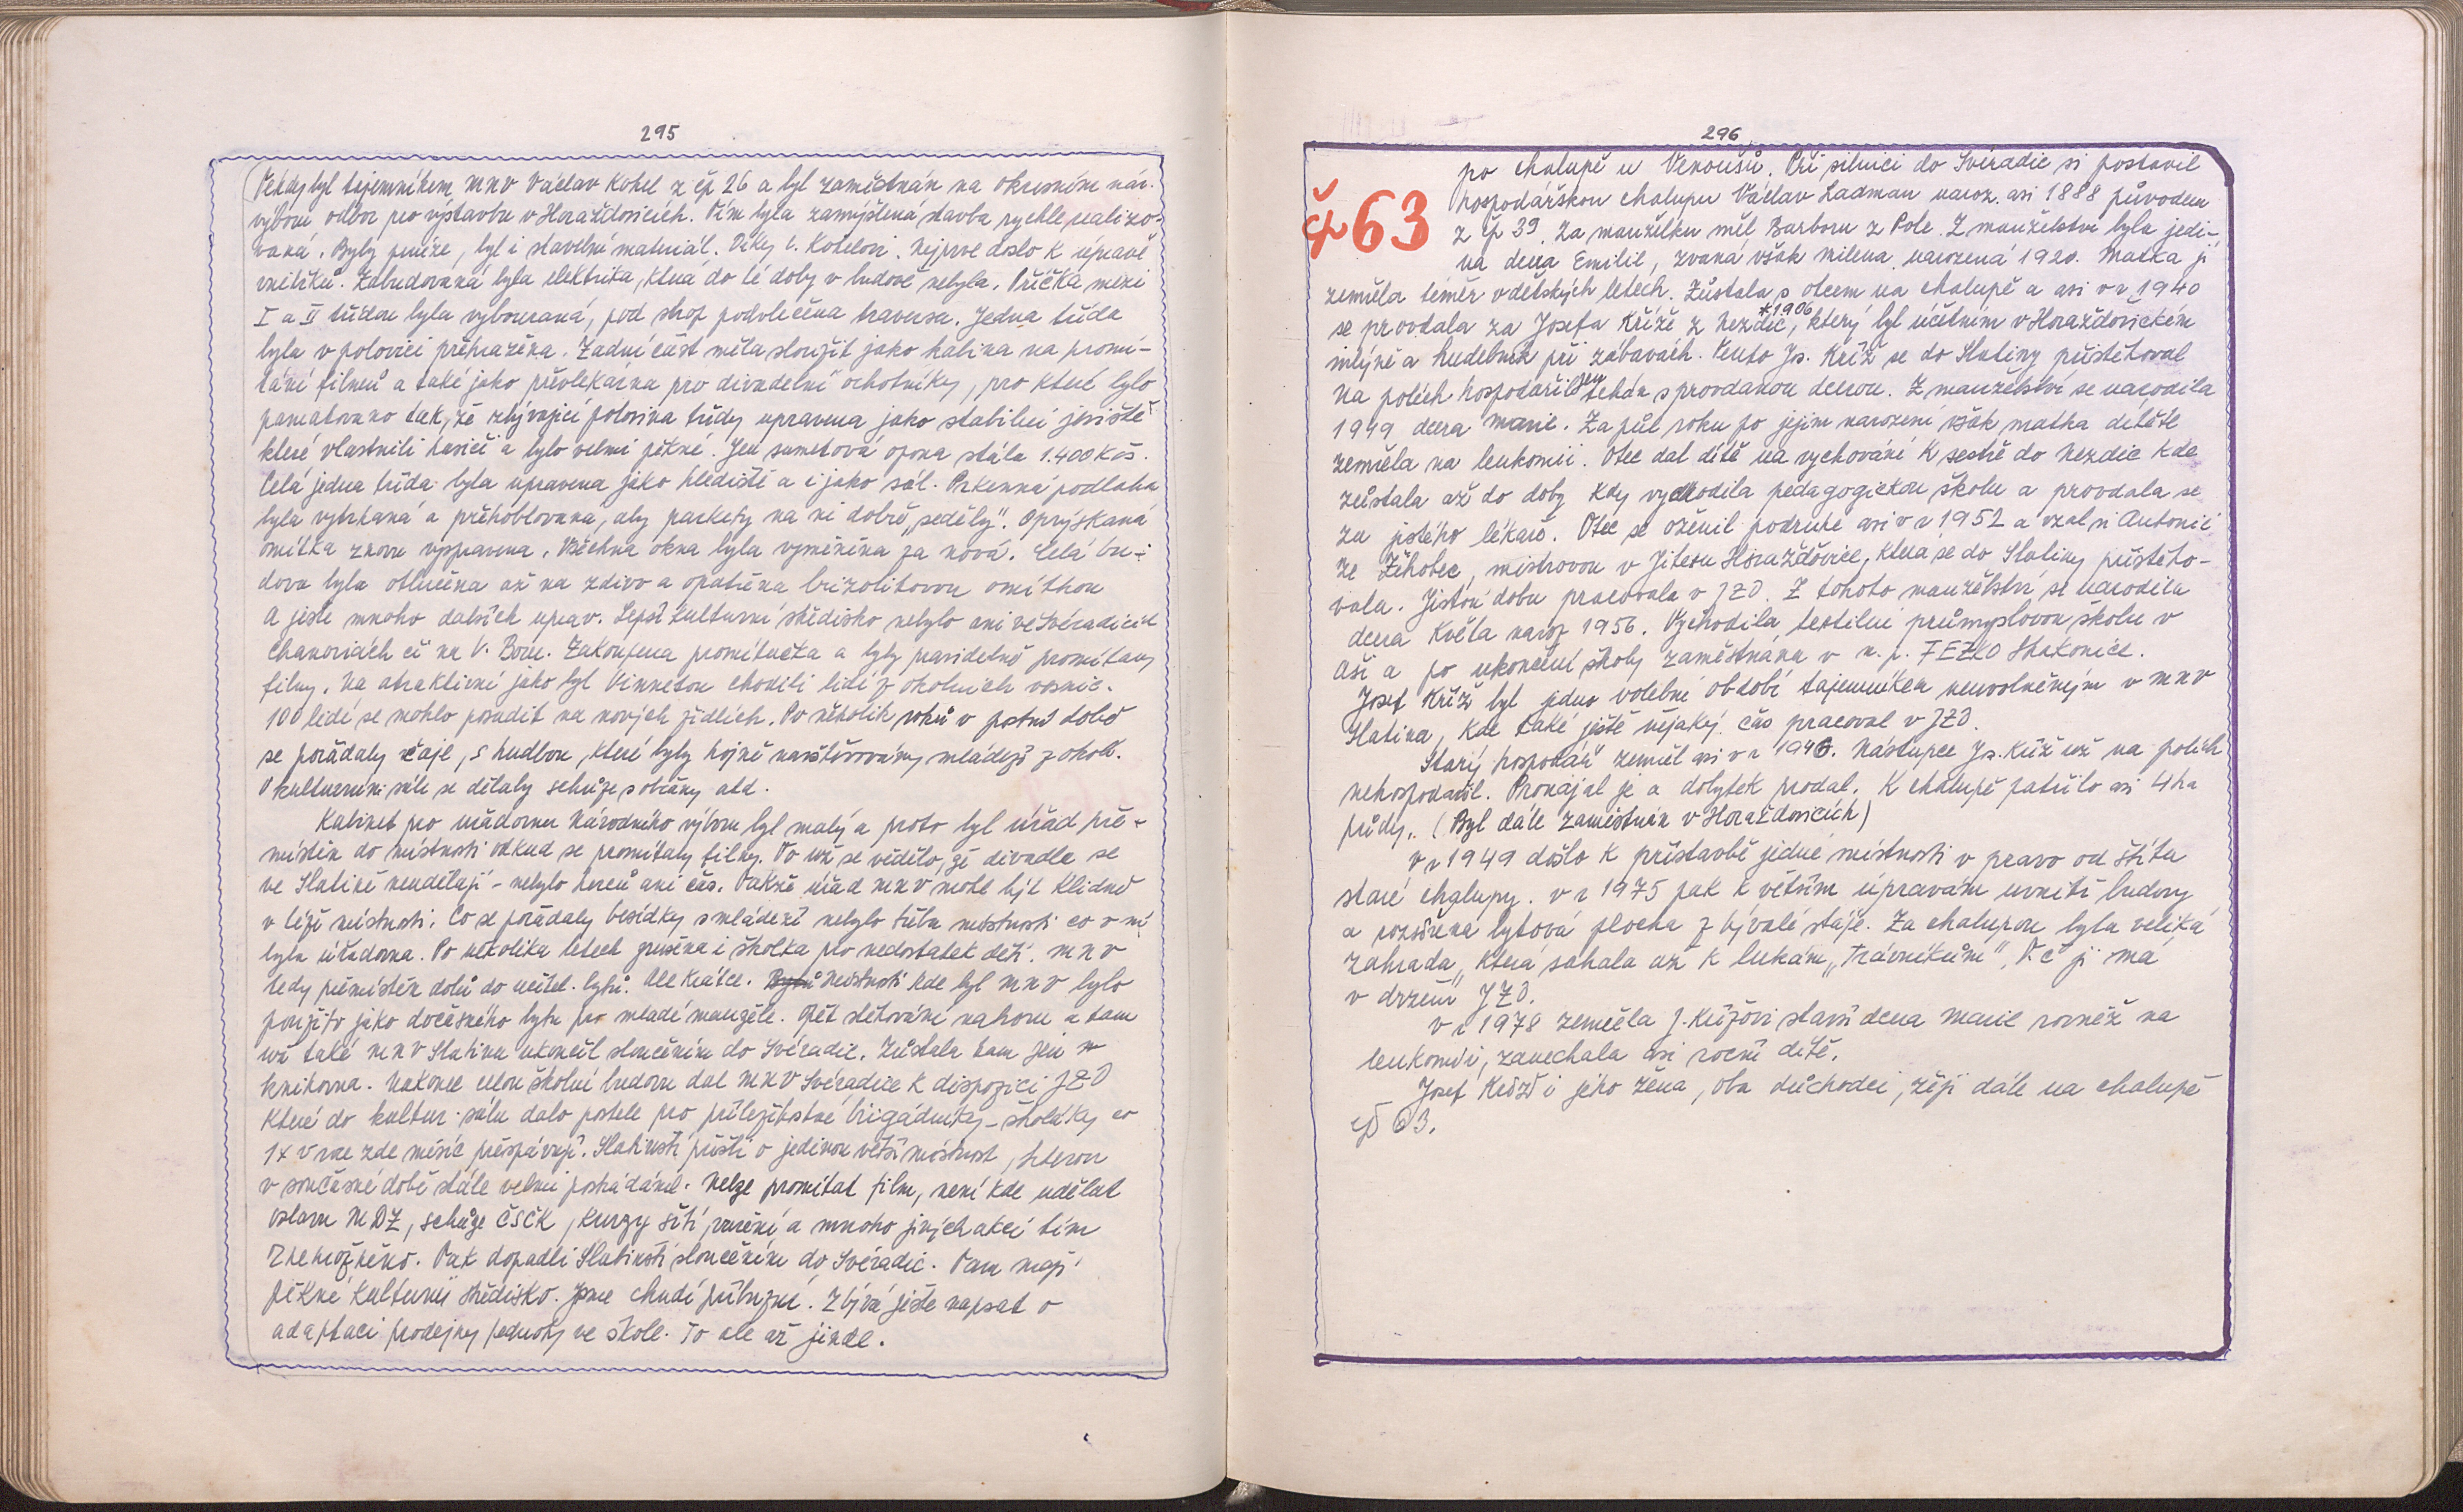 295
Tehdy byl tajemníkem MNV Václav Kohel z čp 26 a byl zaměstnán na okresním nár.
výboru odbor pro výstavbu v Horažďovicích. Tím byla zamýšlená stavba rychle realizo-
vaná. Byly peníze, byl i stavební materiál. Díky V. Kohelovi. Nejprve došlo k úpravě
vnitřků. Zabudovaná byla elektrika, která do té doby v budově nebyla. Příčka mezi
I a II třídou byla vybouraná, pod strop podvlečena traversa. Jedna třída
byla v polovici přehrazena. Zadní část měla sloužit jako kabina na promí-
tání filmů a také jako převlékárna pro divadelní ochotníky, pro které bylo
pamatováno tak, že zbývající polovina třídy upravena jako stabilní jeviště
které vlastnili hasiči a bylo velmi pěkné. Jen sametová opona stála 1.400 Kčs.
Celá jedna třída byla upravena jako hlediště a i jako sál. Prkenná podlaha
byla vytrhaná a přehoblovaná, aby parkety na ni dobře „seděly". Oprýskaná
omítka znovu vyspravena. Všechna okna byla vyměněna za nová. Celá bu-
dova byla otlučena až na zdivo a opatřena brizolitovou omítkou
A jistě mnoho dalších úprav. Lepší kulturní středisko nebylo ani ve Svéradicích
Chanovicích či na V. Boru. Zakoupena promítačka a byly pravidelně promítány
filmy. Na atraktivní jako byl Vinnetou chodili lidé z okolních vesnic.
100 lidí se mohlo posadit na nových židlích. Po několik roků v postní době
se pořádaly čaje, s hudbou, které byly hojně navštěvovány mládeží z okolí.
V kulturním sále se dělaly schůze s občany atd.
Kabinet pro úřadovnu Národního výboru byl malý a proto byl úřad pře-
místěn do místnosti odkud se promítaly filmy. To už se vědělo, že divadla se
ve Slatině neudělají - nebylo herců ani čas. Takže úřad MNV mohl být klidně
v téže místnosti. Co se pořádaly besídky s mládeží nebylo třeba místnosti co v ní
byla úřadovna. Po několika letech zrušena i školka pro nedostatek dětí. MNV
tedy přemístěn dolů do učitel. bytů. Ale krátce. Místnosti kde byl MNV bylo
použito jako dočasného bytu pro mladé manžele. Opět stěhování nahoru a tam
už také MNV Slatina ukončil sloučením do Svéradic. Zůstala tam jen
knihovna. Nakonec celou školní budovu dal MNV Svéradice k dispozici JZD
které do kultur. sálu dalo postele pro příležitostné brigádníky - školáky co
1x v roce zde měsíc přespávají. Slatinští přišli o jedinou větší místnost, kterou
v současné době stále velmi postrádáme. Nelze promítat film, není kde udělat
oslavu MDŽ, schůze ČSČK, kurzy šití, vaření a mnoho jiných akcí tím
znemožněno. Tak dopadli Slatinští sloučením do Svéradic. Tam mají
pěkné kulturní středisko. Jsme chudí příbuzní. Zbývá ještě napsat o
adaptaci prodejny Jednoty ve škole. To ale až jinde.
296
čp 63
po chalupě u Venoušů. Při silnici do Svéradic si postavil
hospodářskou chalupu Václav Ladman naroz. asi 1888 původem
z čp 39. Za manželku měl Barboru z Pole. Z manželství byla jedi-
ná dcera Emilie, zvaná však Milena narozená 1920. Matka jí
zemřela téměř v dětských letech. Zůstala s otcem na chalupě a asi v r 1940
se provdala za Josefa Kříže z Nezdic, *1906 který byl účetním v Horažďovickém
mlýně a hudebník při zábavách. Tento Js. Kříž se do Slatiny přistěhoval
Na polích hospodařil jen tchán s provdanou dcerou. Z manželství se narodila
1949 dcera Marie. Za půl roku po jejím narození však matka dítěte
zemřela na leukomii. Otec dal dítě na vychování k sestře do Nezdic kde
zůstala až do doby kdy vychodila pedagogickou školu a provdala se
za jistého lékaře. Otec se oženil podruhé asi v r 1952 a vzal si Antonii
ze Žihobec, mistrovou v Jitexu Horažďovice, která se do Slatiny přistěho-
vala. Jistou dobu pracovala v JZD. Z tohoto manželství se narodila
dcera Květa naroz 1956. Vychodila textilní průmyslovou školu v
Aši a po ukončení školy zaměstnána v n. p. FEZKO Strakonice.
Josef Kříž byl jedno volební období tajemníkem neuvolněným v MNV
Slatina, kde také ještě nějaký čas pracoval v JZD.
Starý hospodář zemřel asi v r 1946. Nástupce Js. Kříž už na polích
nehospodařil. Pronajal je a dobytek prodal. K chalupě patřilo asi 4 ha
půdy. (Byl dále zaměstnán v Horažďovicích)
V r 1949 došlo k přístavbě jedné místnosti v pravo od štítu
staré chalupy. v r 1975 pak k větším úpravám uvnitř budovy
a rozšířena bytová plocha z bývalé stáje. Za chalupou byla veliká
zahrada, která sahala až k lukám „Trávníkům". T. č. ji má
v držení JZD.
V r 1978 zemřela J. Křížovi starší dcera Marie rovněž na
leukomii, zanechala asi roční dítě.
Josef Kříž i jeho žena, oba důchodci, žijí dále na chalupě
čp 63.